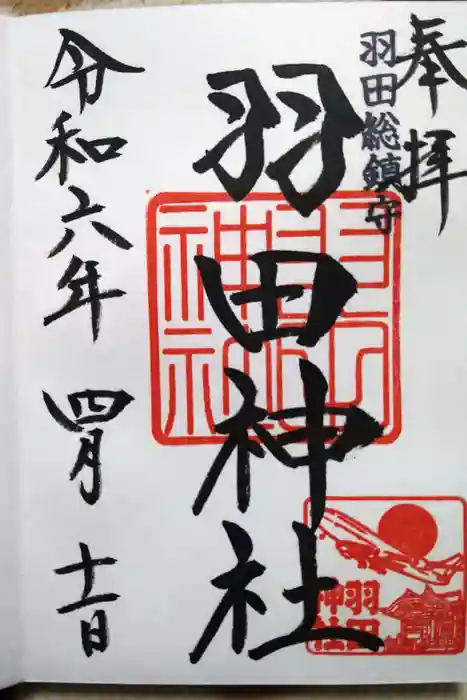 奉拝
羽田総鎮守
羽田神社
羽田神社
羽田
神社
令和六年 四月 十一日